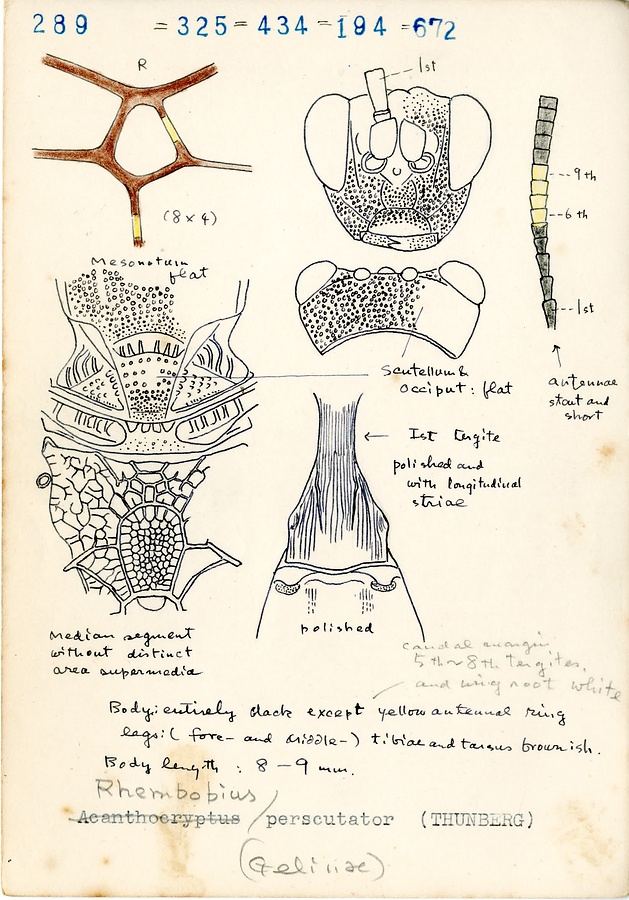 289 = 325 = 434 = 194 = 672
R
1st
(8 x 4)
9th
6th
1st
Mesonotum
flat
Scutellum &
occiput : flat
antennae
stout and
short
Ist tergite
polished and
with longitudinal
striae
polished
Median segment
without distinct
area supermedia
caudal margin
5th~8th tergites,
and wing root white
Body: entirely black except yellow antennal ring
legs: ( fore- and middle-) tibiae and tarsus brownish.
Body length : 8 – 9 mm.
Rhembobius
Acanthocryptus / perscutator (THUNBERG)
(Gelinae)